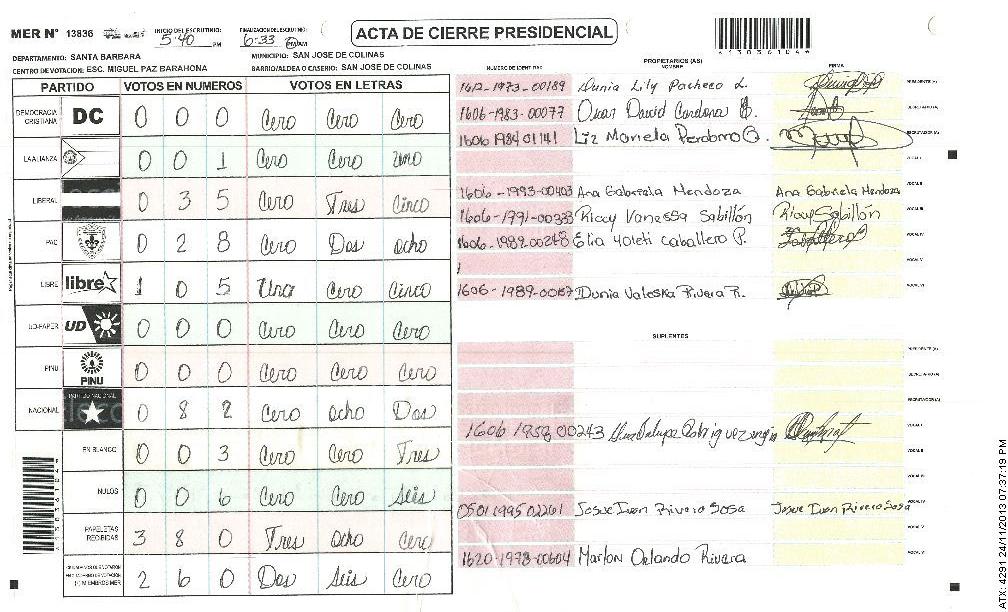 MER N° 13836
INICIO DEL ESCRUTINIO: 5:40 PM
FINALIZACION DEL ESCRUTINIO: 6:33 PM/AM
ACTA DE CIERRE PRESIDENCIAL
DEPARTAMENTO: SANTA BARBARA
MUNICIPIO: SAN JOSE DE COLINAS
CENTRO DE VOTACION: ESC. MIGUEL PAZ BARAHONA
BARRIO/ALDEA O CASERIO: SAN JOSE DE COLINAS
PARTIDO VOTOS EN NUMEROS VOTOS EN LETRAS
DEMOCRACIA CRISTIANA DC 0 0 0 Cero Cero Cero
LA ALIANZA 0 0 1 Cero Cero uno
LIBERAL 0 3 5 Cero Tres Cinco
PAC 0 2 8 Cero Dos ocho
LIBRE libre 1 0 5 Uno Cero Cinco
UD-FAPER UD 0 0 0 Cero Cero Cero
PINU PINU 0 0 0 Cero Cero Cero
NACIONAL PARTIDO NACIONAL 0 8 2 Cero ocho Dos
EN BLANCO 0 0 3 Cero Cero Tres
NULOS 0 0 6 Cero Cero Seis
PAPELETAS RECIBIDAS 3 8 0 Tres ocho Cero
2 6 0 Dos Seis Cero
NUMERO DE IDENTIDAD PROPIETARIOS (AS) NOMBRE FIRMA
1612-1973-00189 Dunia Lily Pacheco L. PRESIDENTE (A)
1606-1983-00077 Oscar David Cardona B. SECRETARIO (A)
1606 1984 01141 Liz Mariela Perdomo G. ESCRUTADOR (A)
VOCAL I
1606-1993-00403 Ana Gabriela Mendoza Ana Gabriela Mendoza VOCAL II
1606-1991-00333 Ricsy Vanessa Sabillón Ricsy Sabillón VOCAL III
1606-1989-00248 Elia Yoleti Caballero P. VOCAL IV
VOCAL V
1606-1989-00187 Dunia Valeska Rivera R. VOCAL VI
SUPLENTES
PRESIDENTE (A)
SECRETARIO (A)
ESCRUTADOR (A)
1606 1958 00243 VOCAL I
VOCAL II
VOCAL III
0501 1995 02261 Josue Ivan Rivera Sosa Josue Ivan Rivera Sosa VOCAL IV
VOCAL V
1620-1978-00604 Marlon Orlando Rivera VOCAL VI
ATX: 4291 24/11/2013 07:37:19 PM